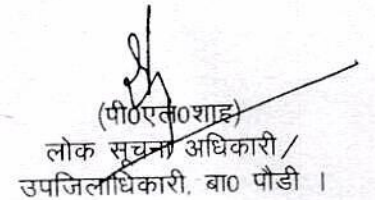 (पी0एल0शाह)
लोक सूचना अधिकारी /
उपजिलाधिकारी, बा0 पौडी ।